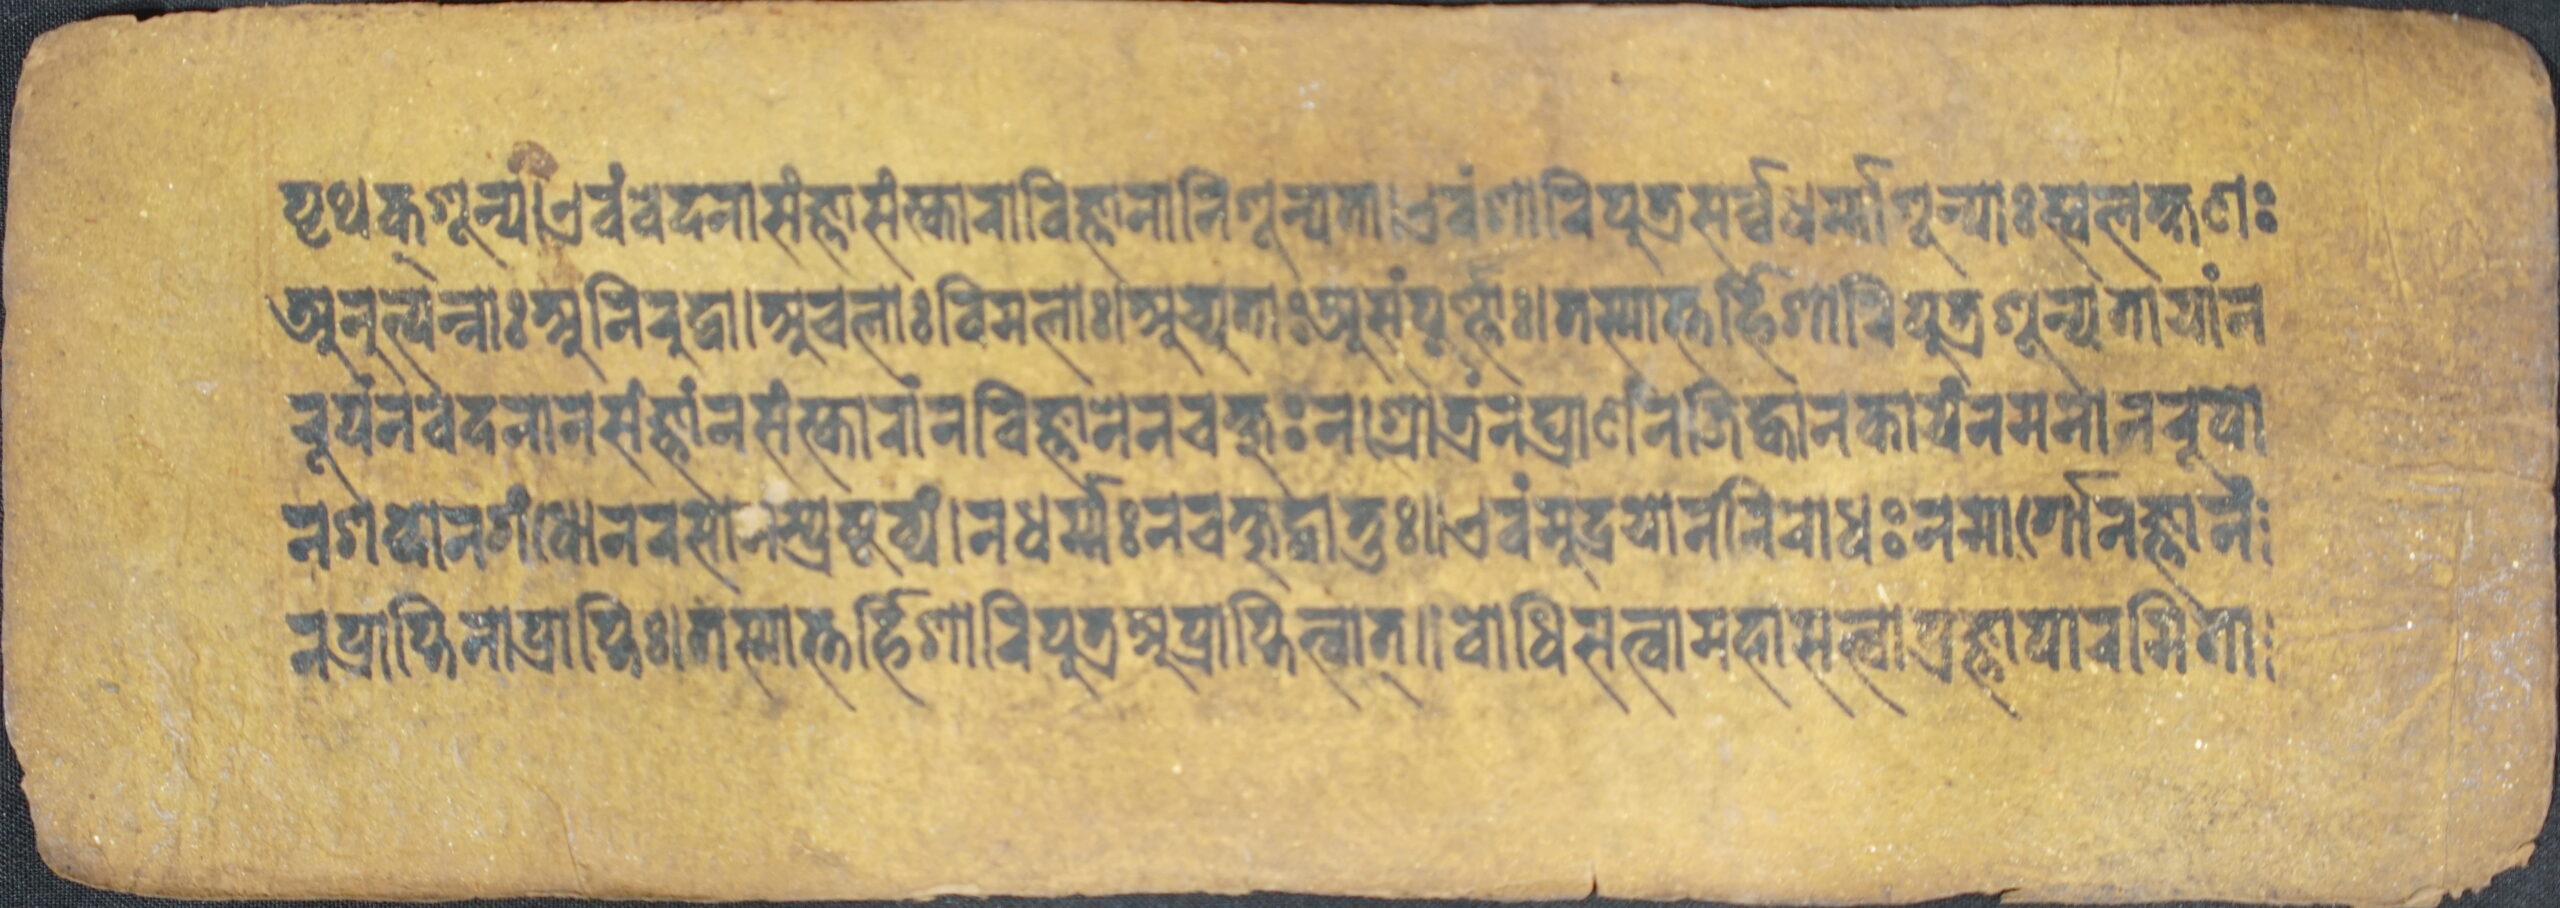 पृथक्शून्यं।एवंवेदनासंज्ञासंस्काराविज्ञानानिशून्यता।एवंशारिपुत्रसर्व्वधर्म्माशून्याःस्वलक्षणः
अनुत्पन्नाःअनिरुद्धा।अचलाःविमलाः।अच्युताःअसंपूर्ण्णाः।तस्मात्तर्हिशारिपुत्रशून्यतायांन
रूपंनवेदनानसंज्ञांनसंस्कारांनविज्ञानेनचक्षुःनश्रोत्रंनघ्राणंनजिह्वानकायंनमनोनरूपो
नशब्दोनगंधोनरसोनस्प्रष्टव्यं।नधर्म्मःनचक्षुद्धातुः॥एवंमुद्रयोननिरोधःनमार्गोनज्ञानं
नप्राप्तिनाप्राप्तिः।तस्मात्तर्हिशारिपुत्रअप्राप्तित्वात्॥बोधिसत्वामहासत्वाप्रज्ञापारमिता